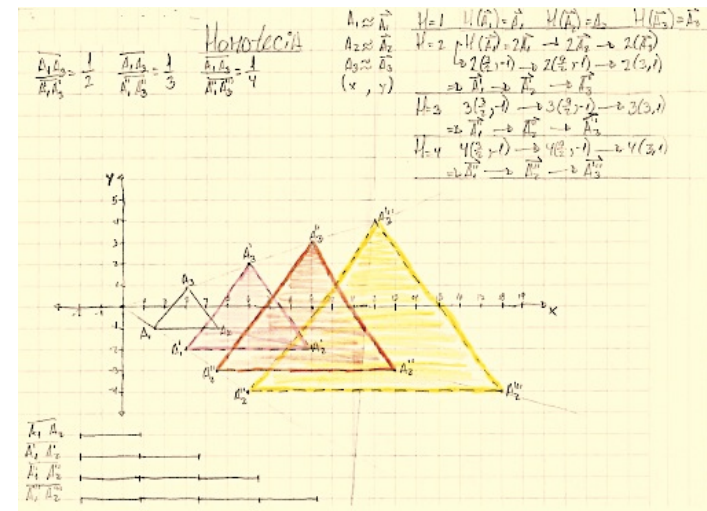 Homotecia
A₁A₃/A'₁A'₃ = 1/2 A₁A₃/A''₁A''₃ = 1/3 A₁A₃/A'''₁A'''₃ = 1/4
A₁ ≈ A₁
A₂ ≈ A₂
A₃ ≈ A₃
(x, y)
H=1 H(A₁)=A₁ H(A₂)=A₂ H(A₃)=A₃
H=2 H(A₁)=2A₁ → 2A₂ → 2(A₃)
↳ 2(3/2,-1) → 2(9/2,-1) → 2(3,1)
=> A'₁ → A'₂ → A'₃
H=3 3(3/2,-1) → 3(9/2,-1) → 3(3,1)
=> A''₁ → A''₂ → A''₃
H=4 4(3/2,-1) → 4(9/2,-1) → 4(3,1)
=> A'''₁ → A'''₂ → A'''₃
Y
5
4
3
2
1
x
-1
-2
-3
-4
A₁
A₂
A₃
A'₁
A'₂
A'₃
A''₁
A''₂
A''₃
A'''₂
A'''₂
A₁ A₂
A'₁ A'₂
A''₁ A''₂
A'''₁ A'''₂